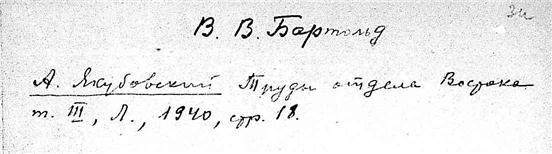 В. В. Бартольд
А. Якубовский Труды отдела Востока
т. III, Л., 1940, стр. 18.